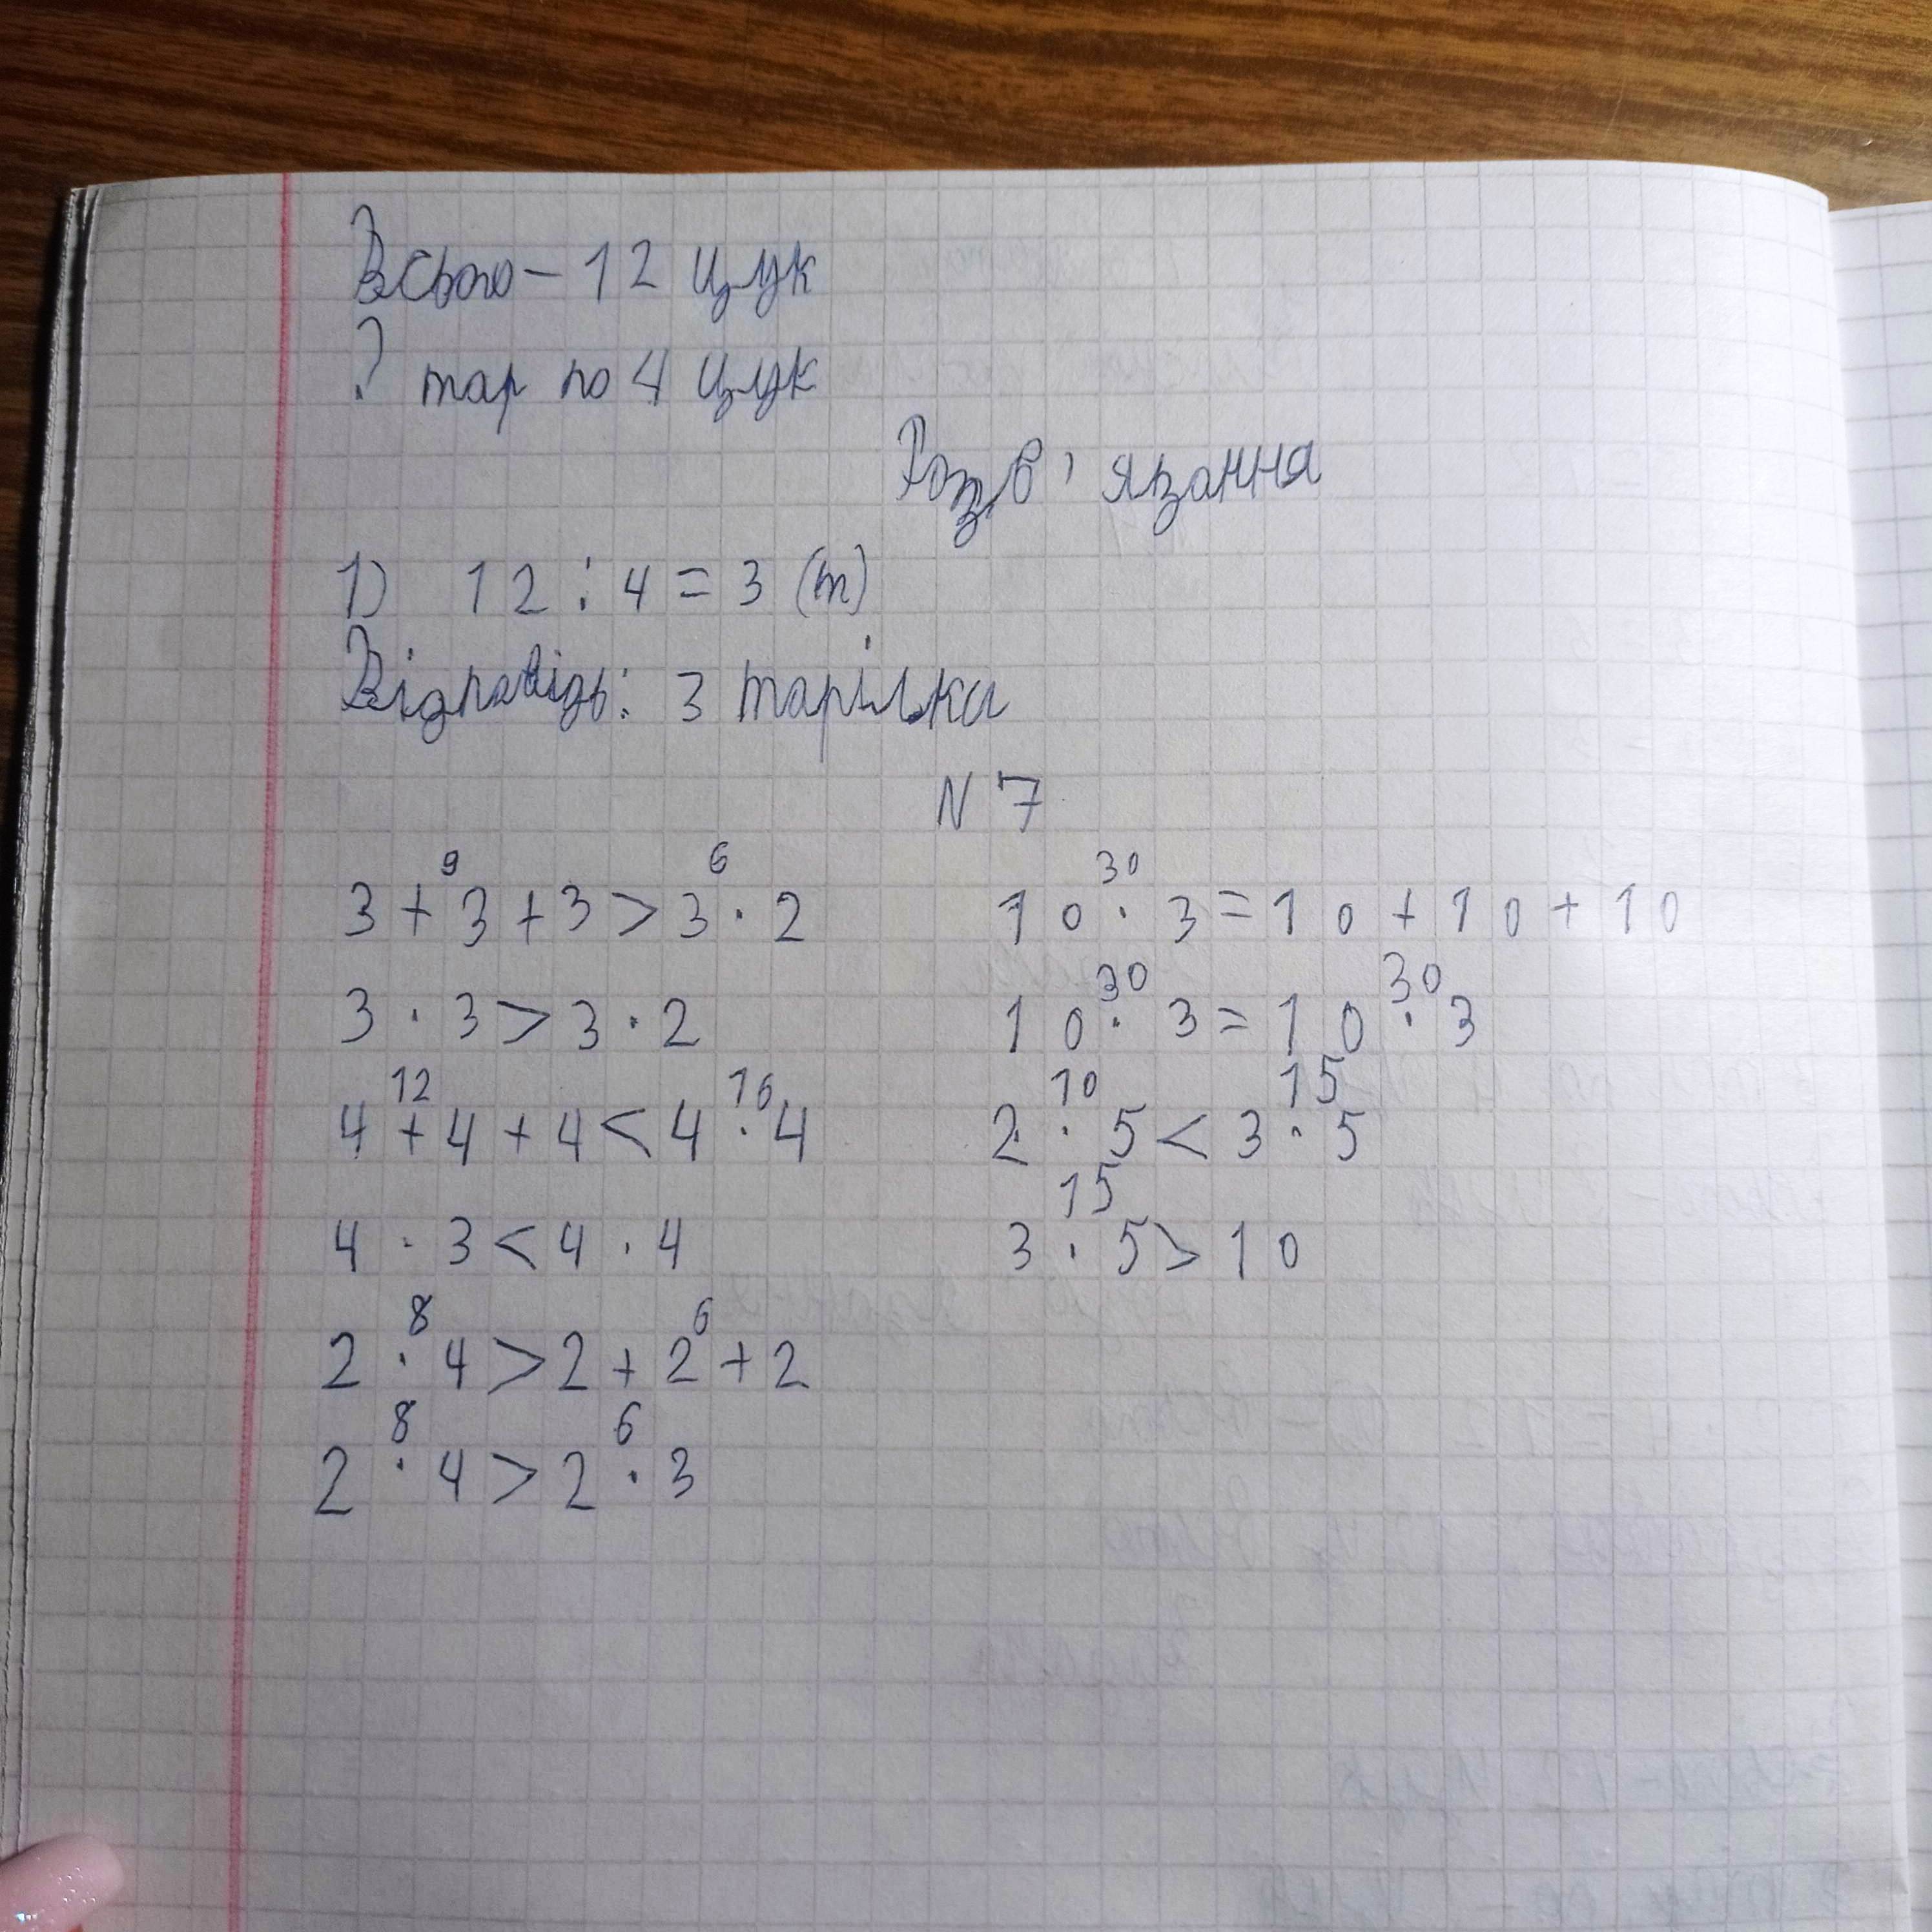 Всього - 12 цук
? тар по 4 цук
Розв'язання
1) 12 : 4 = 3 (т)
Відповідь: 3 тарілки
N 7
9 6
3 + 3 + 3 > 3 · 2
3 · 3 > 3 · 2
12 16
4 + 4 + 4 < 4 · 4
4 · 3 < 4 · 4
8 6
2 · 4 > 2 + 2 + 2
8 6
2 · 4 > 2 · 3
30
10 · 3 = 10 + 10 + 10
30 30
10 · 3 = 10 · 3
10 15
2 · 5 < 3 · 5
15
3 · 5 > 10